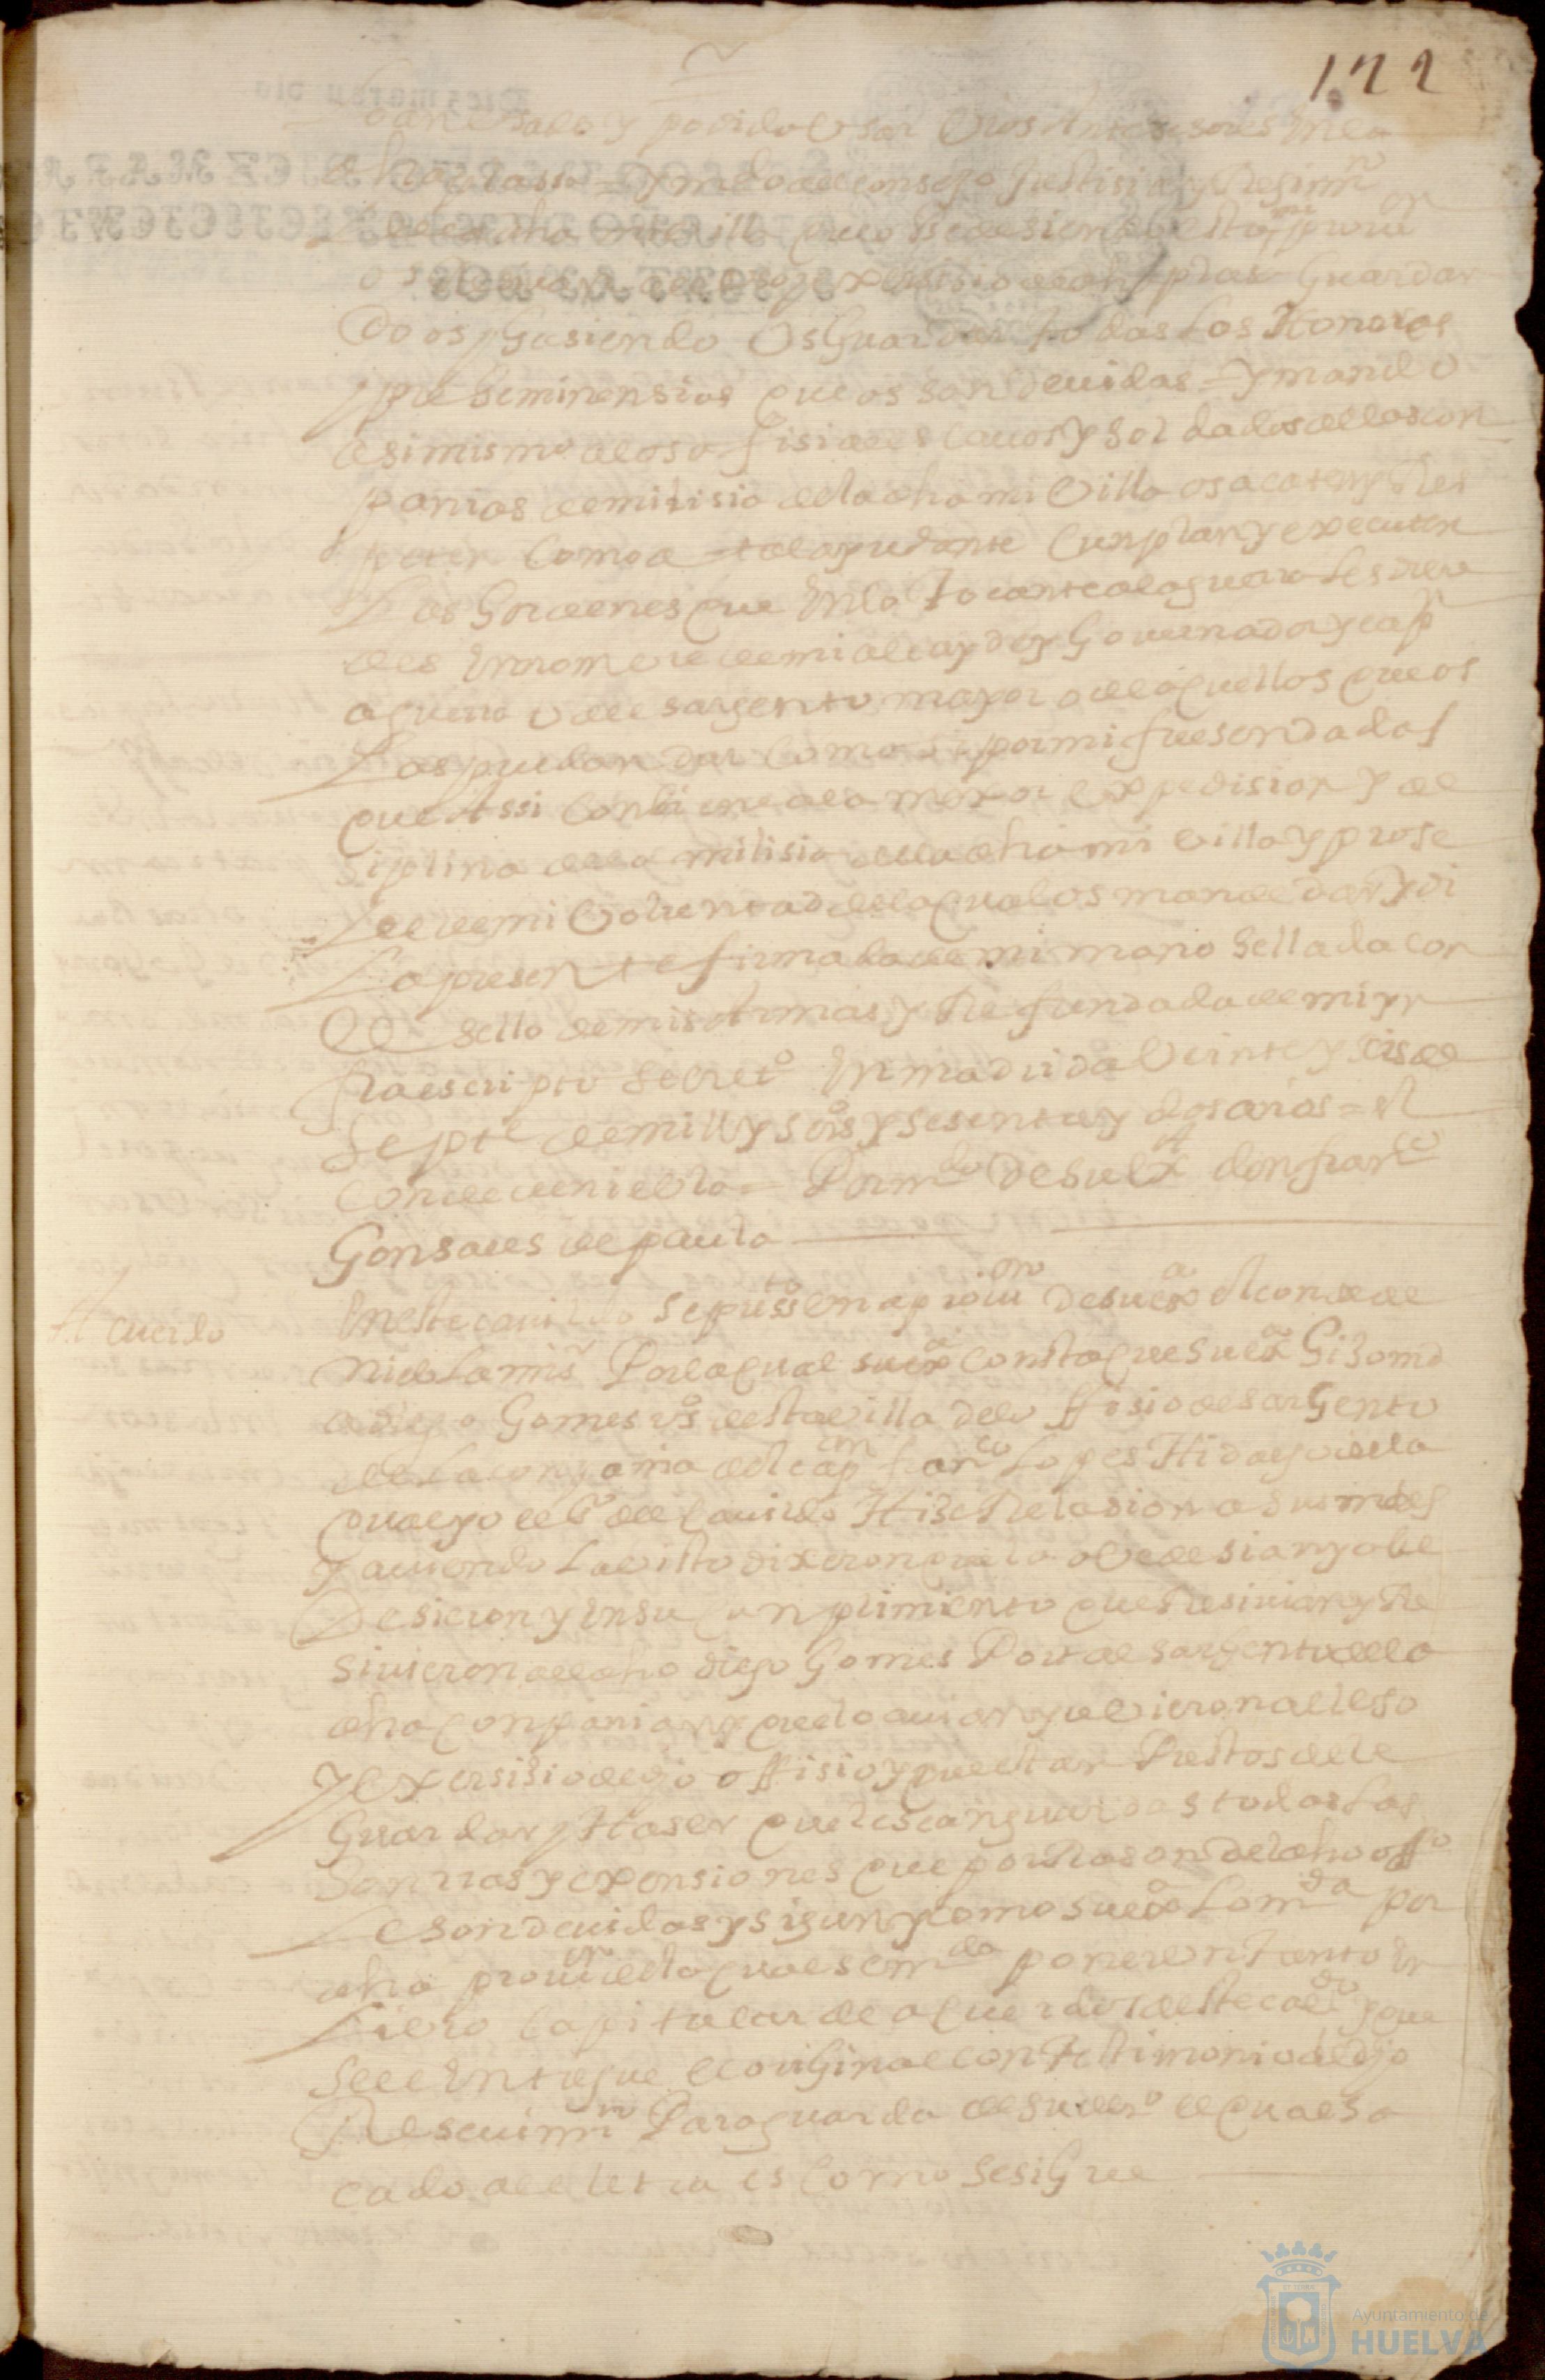 122
han usado y podido Usar Uros Antesesores En la
dha plassa = y mdo al consejo justisia y Regimto
de la dha mi Villa que Resciuiendo esta mi prouon
os guardar
Do os y hasiendo Os Guardar todas Las Honores
y prebeminensias que os son deuidas = y mando
asimismo a los ofisiales cauos y soldados de las con
panias de milisia de la dha mi Villa os acaten y Res
peten Como a tal ayudante Cunplan y executen
Las hordenes que En lo tocante a la guerra Les die re
des En nombre de mi alcayde y Gouernador y cap
a guerra o del sargento mayor o de aquellos que os
Las puedan dar Como si por mi fuesen dadas
que Assi conbiene a la mexor expedision y de
siplina de la milisia de la dha mi villa y prose
de de mi Voluntad de lo qual os mande dar y di
La presente firmada de mi mano Sellada con
el sello de mis Armas y Refrendada de mi yn
fraescripto Secreto En madrid a Veinte y seis de
Septe de mill y seisos y sesenta y dos años = El
Conde de niebla = Por mdo De su exa don franco
Gonsales de paula
Acuerdo
En este cauildo se presento Vna prouon De su exa el conde de
niebla mi sr Por la qual su exa consta que su exa hiso md
a diego Gomes vo desta villa del offisio de sargento
de la conpania del capn franco Lopes Hidalgo de la
qual yo el sno del Cauildo Hise Relasion a sus mdes
y auiendola visto dixeron que la obedesian y obe
Desieron y En su Cunplimiento que Resiuian y Re
siuieron al dho diego Gomes Por tal sargento de la
dha conpania y que lo auian y Vbieron al Uso
y exersisio de dho offisio y que estan Prestos de le
Guardar y Haser que le sean guardas todas Las
honrras y exensiones que por Rason del dho offo
Le son deuidas y sigun y como su exa Lo mda por
dha prouon de la qual se mdo poner Vn tanto En
Libro Capitular de acuerdos deste cauildo y que
se le Entregue el original con Testimonio de dho
Resciuimto Para guarda de su dero el qual sa
cado a la letra es Como se sigue
Ayuntamiento de
HUELVA